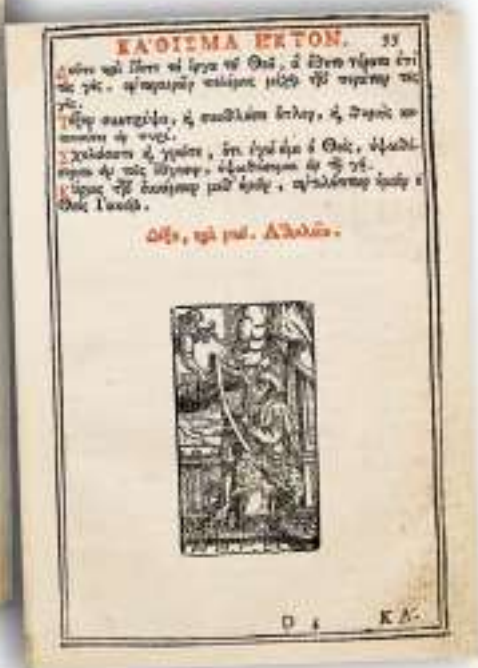 ΚΑ'ΘΙΣΜΑ Ε῞ΚΤΟΝ. 55
Δεῦτε καὶ ἴδετε τὰ ἔργα τοῦ Θεοῦ, ἃ ἔθετο τέρατα ἐπὶ
τῆς γῆς. ἀνταναιρῶν πολέμους μέχρι τῶν περάτων τῆς
γῆς.
Τόξον συντρίψει, καὶ συνθλάσει ὅπλον, καὶ θυρεοὺς κα-
τακαύσει ἐν πυρί.
Σχολάσατε καὶ γνῶτε, ὅτι ἐγώ εἰμι ὁ Θεὸς, ὑψωθή-
σομαι ἐν τοῖς ἔθνεσιν, ὑψωθήσομαι ἐν τῇ γῇ.
Κύριος τῶν δυνάμεων μεθ' ἡμῶν, ἀντιλήπτωρ ἡμῶν ὁ
Θεὸς Ἰακώβ.
Δόξα, καὶ νῦν. Α'λληλούϊα.
D 4 ΚΑ-